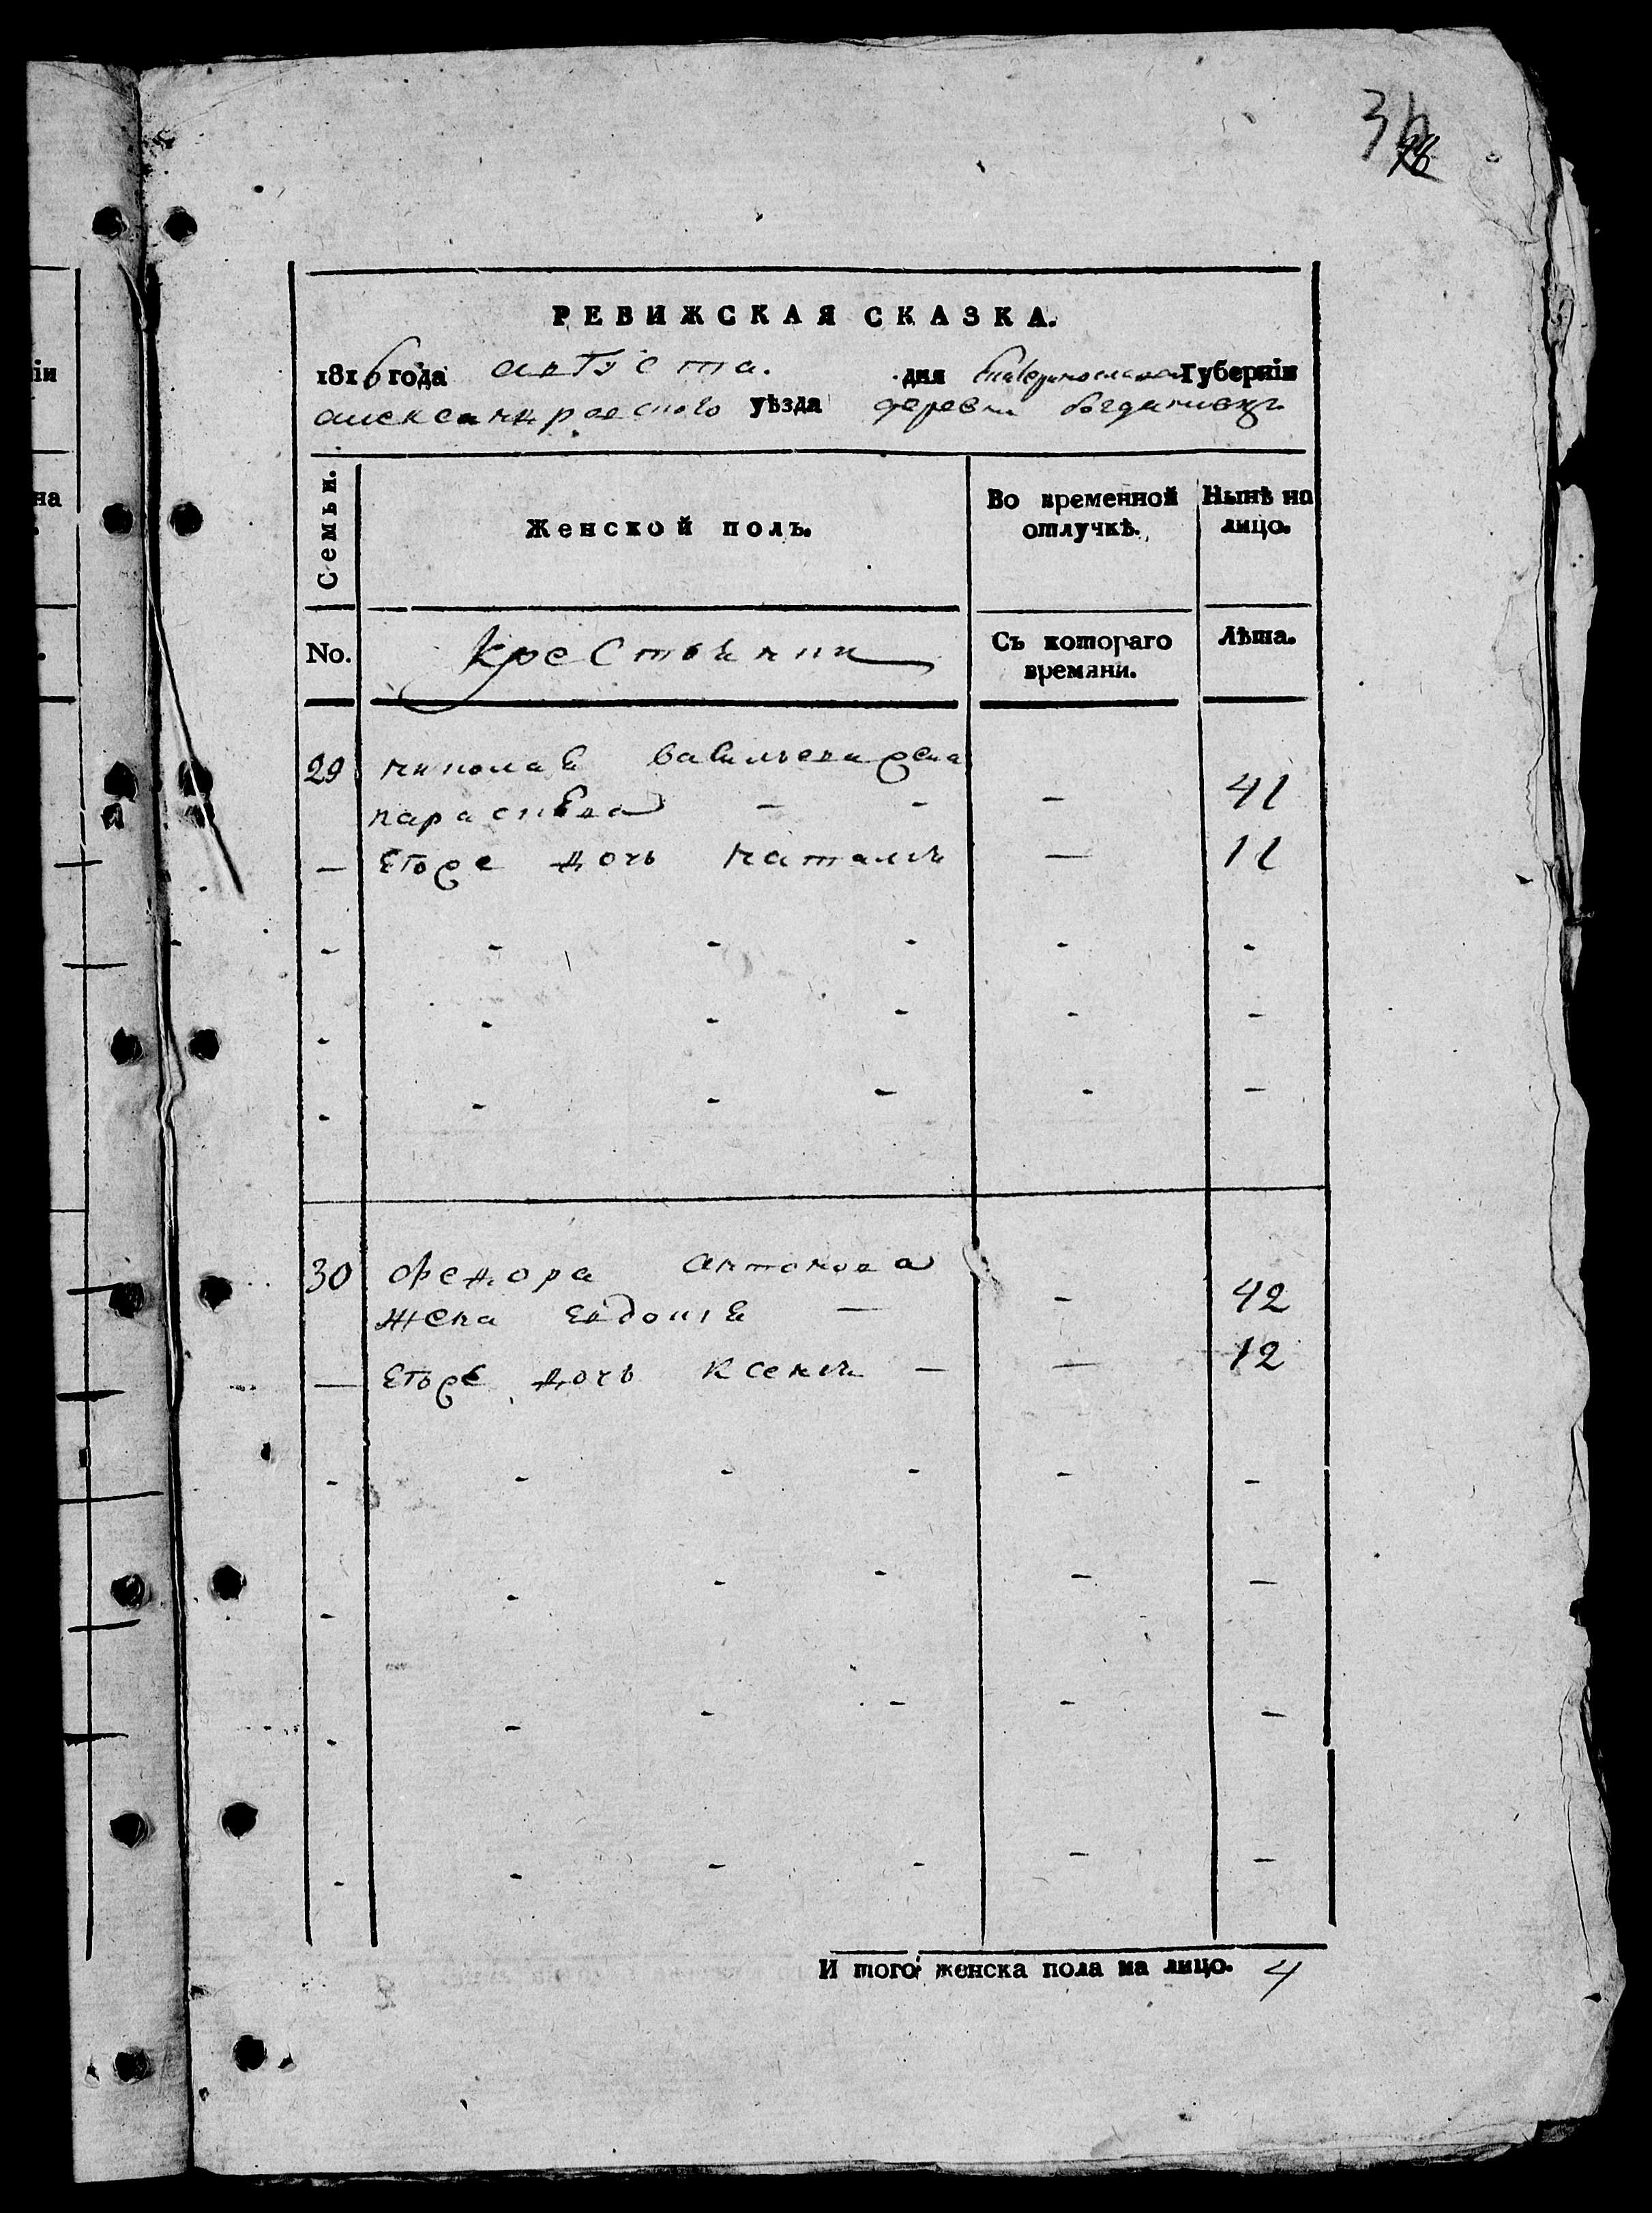 36
РЕВИЖСКАЯ СКАЗКА.
1816 года августа. дня Екатеринославской Губерніи
александровского уѣзда деревни богдановки
Семьи.
Женской полъ.
Во временной отлучкѣ.
Нынѣ на лицо.
No.
Крестьянии
Съ котораго времяни.
Лѣта.
29 николая васильева жена
параскева - - - 41
— Егоже дочь наталия — 11
- - - - - -
- - - - - -
- - - - - -
30 федора антонова
жена евдокия — - 42
— Егоже дочь ксения — — 12
- - - - - -
- - - - - -
- - - - - -
- - - - - -
И того женска пола на лицо. 4
іи
на